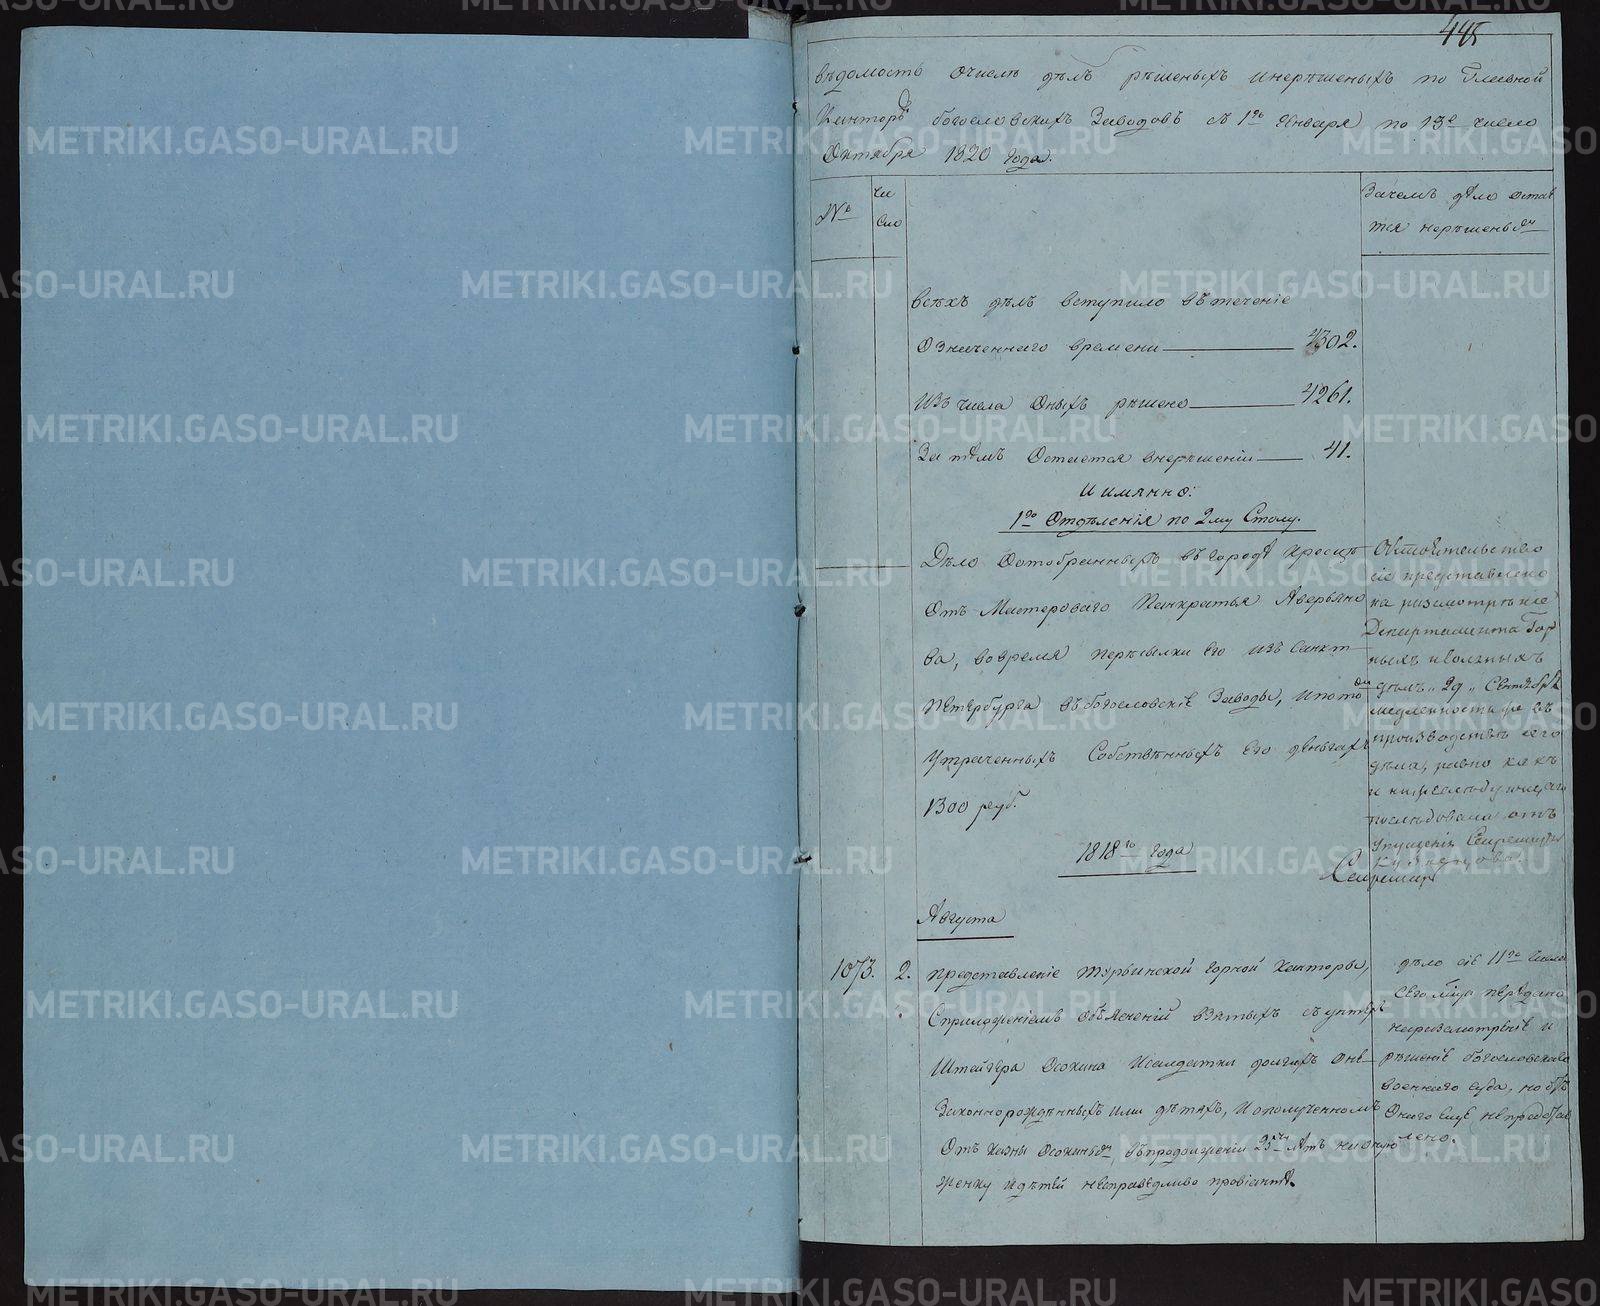 445
Вѣдомость о числѣ дѣлъ рѣшеныхъ и нерѣшеныхъ по Главной
Канторѣ Богословскихъ Заводовъ съ 1го Генваря по 13е число
Октября 1820 года.
№
Чи
сло
Зачемъ дѣло остае
тся нерѣшенымъ
Всѣхъ дѣлъ вступило въ теченіе
означеннаго времени 4302.
Изъ числа оныхъ рѣшено 4261.
За тѣмъ остается внерѣшеніи 41.
И имянно:
1го Отдѣленія по 2му Столу.
Дѣло о отобранныхъ въ городѣ
отъ Мастероваго Панкратья Аверьяно
ва, вовремя пересылки его изъ Санкт
Петербурга въ Богословскіе Заводы, и потомъ
утраченныхъ собственныхъ его деньгахъ
1300 руб.
Обстоятельство
сіе представлено
на разсмотрѣніе
Департамента Гор
ныхъ и Соляныхъ
дѣлъ 29 Сентября
медленность же въ
производствѣ сего
дѣла, равно какъ
и нижеслѣдующаго
послѣдовала отъ
упущенія Секретаря
Кузнецова.
Секретарь
1818го года
Августа
1073. 2. Представленіе Турьинской горной Канторы,
Сприложеніемъ объясненій взятыхъ съ унтеръ
Штейгера Осокина и солдатки Долгихъ о не
законнорожденныхъ ими дѣтяхъ, и о полученномъ
отъ казны Осокинымъ, въ продолженіи 23хъ лѣтъ на оную
женку и дѣтей несправедливо провіантѣ.
дѣло сіе 11го числа
сего мѣсяца передано
на разсмотреніе и
рѣшеніе Богословскаго
военнаго суда, но отъ
онаго еще не представ
лено.
METRIKI.GASO-URAL.RU